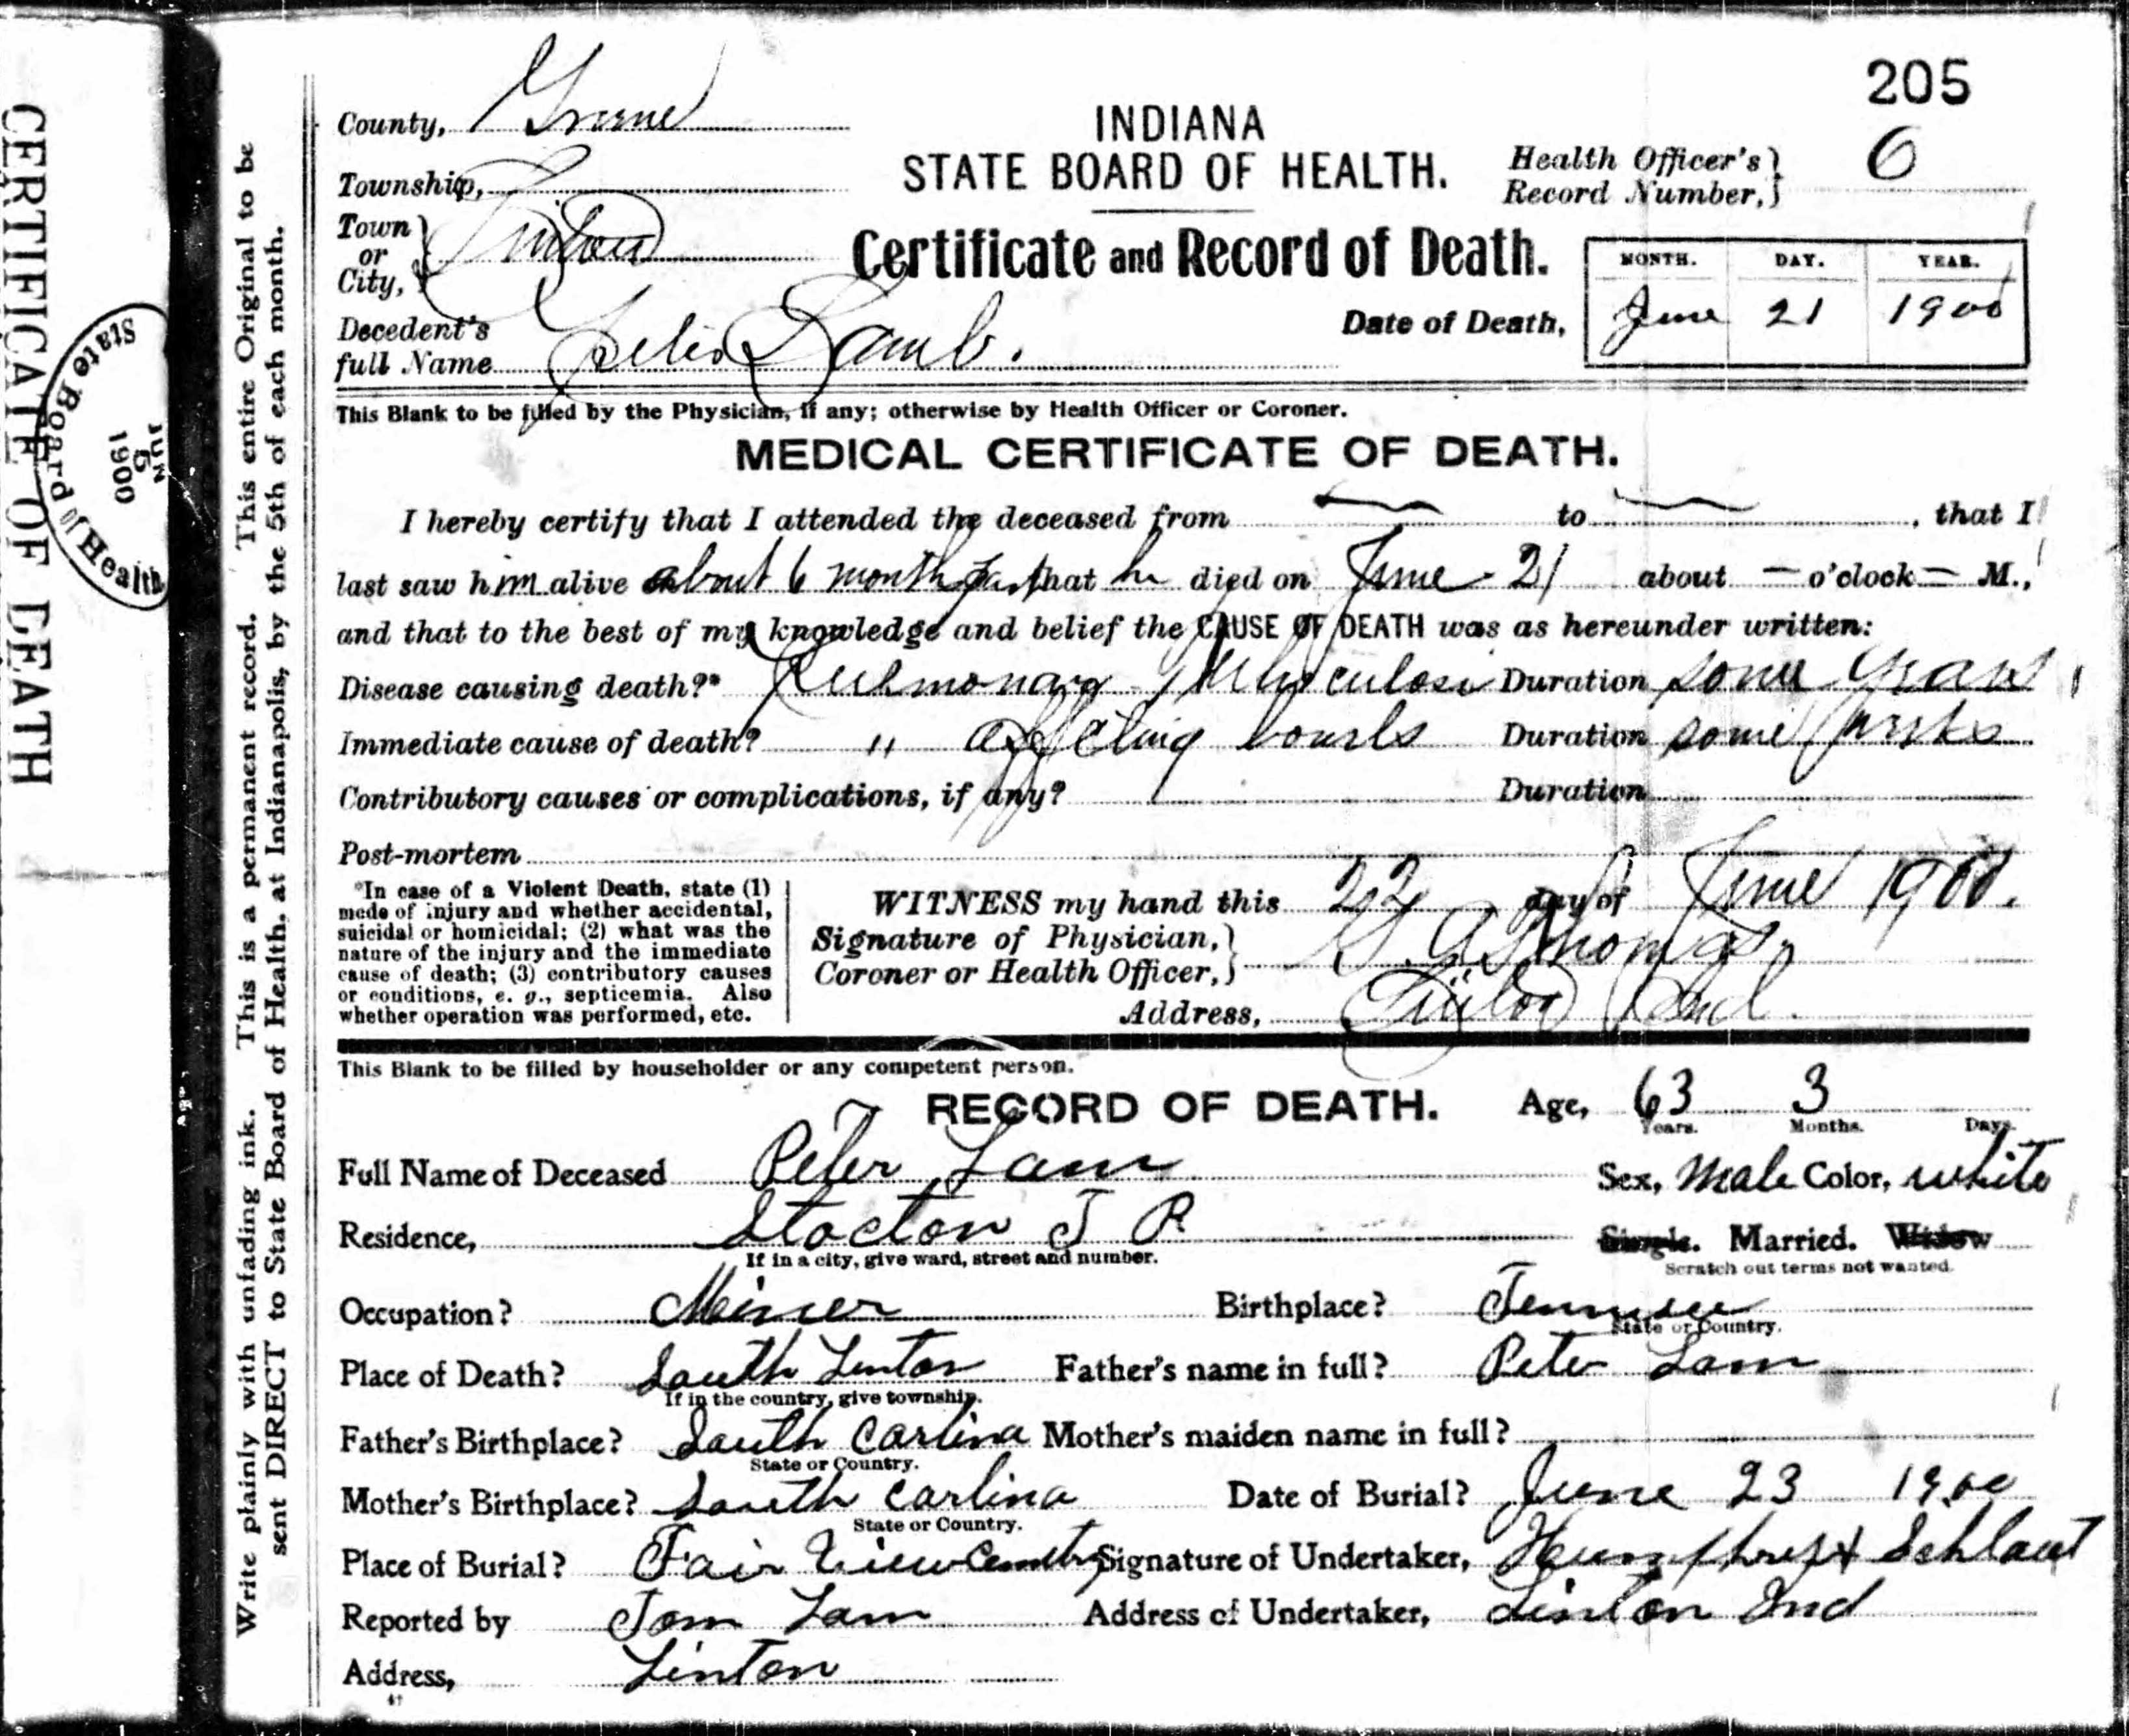 205
County, Greene
INDIANA
STATE BOARD OF HEALTH.
Health Officer's Record Number, 6
Township,
Town or City, Linton
Certificate and Record of Death.
MONTH. DAY. YEAR.
Date of Death, June 21 1900
Decedent's full Name Peter Lamb.
This Blank to be filled by the Physician, if any; otherwise by Health Officer or Coroner.
MEDICAL CERTIFICATE OF DEATH.
I hereby certify that I attended the deceased from — to — , that I
last saw him alive about 6 months past that he died on June 21 about — o'clock — M.,
and that to the best of my knowledge and belief the CAUSE OF DEATH was as hereunder written:
Disease causing death?* Pulmonary Tuberculosis Duration some years
Immediate cause of death? " affecting bowels Duration some weeks
Contributory causes or complications, if any? Duration
Post-mortem
*In case of a Violent Death, state (1)
mode of injury and whether accidental,
suicidal or homicidal; (2) what was the
nature of the injury and the immediate
cause of death; (3) contributory causes
or conditions, e. g., septicemia. Also
whether operation was performed, etc.
WITNESS my hand this 22 day of June 1900.
Signature of Physician, Coroner or Health Officer, Thomas
Address, Linton Ind.
This Blank to be filled by householder or any competent person.
RECORD OF DEATH.
Age, 63 Years. 3 Months. Days.
Full Name of Deceased Peter Lam
Sex, Male Color, white
Residence, Stocton T P
If in a city, give ward, street and number.
Single. Married. Widow
Scratch out terms not wanted.
Occupation? Miner Birthplace? Tennessee
State or Country.
Place of Death? South Linton Father's name in full? Peter Lam
If in the country, give township.
Father's Birthplace? South Carlina Mother's maiden name in full?
State or Country.
Mother's Birthplace? South Carlina Date of Burial? June 23 1900
State or Country.
Place of Burial? Fair View Cemetry Signature of Undertaker, Humphreys & Schlaut
Reported by Tom Lam Address of Undertaker, Linton Ind
Address, Linton
Write plainly with unfading ink. This is a permanent record. This entire Original to be
sent DIRECT to State Board of Health, at Indianapolis, by the 5th of each month.
CERTIFICATE OF DEATH
State Board of Health
JUN
5
1900